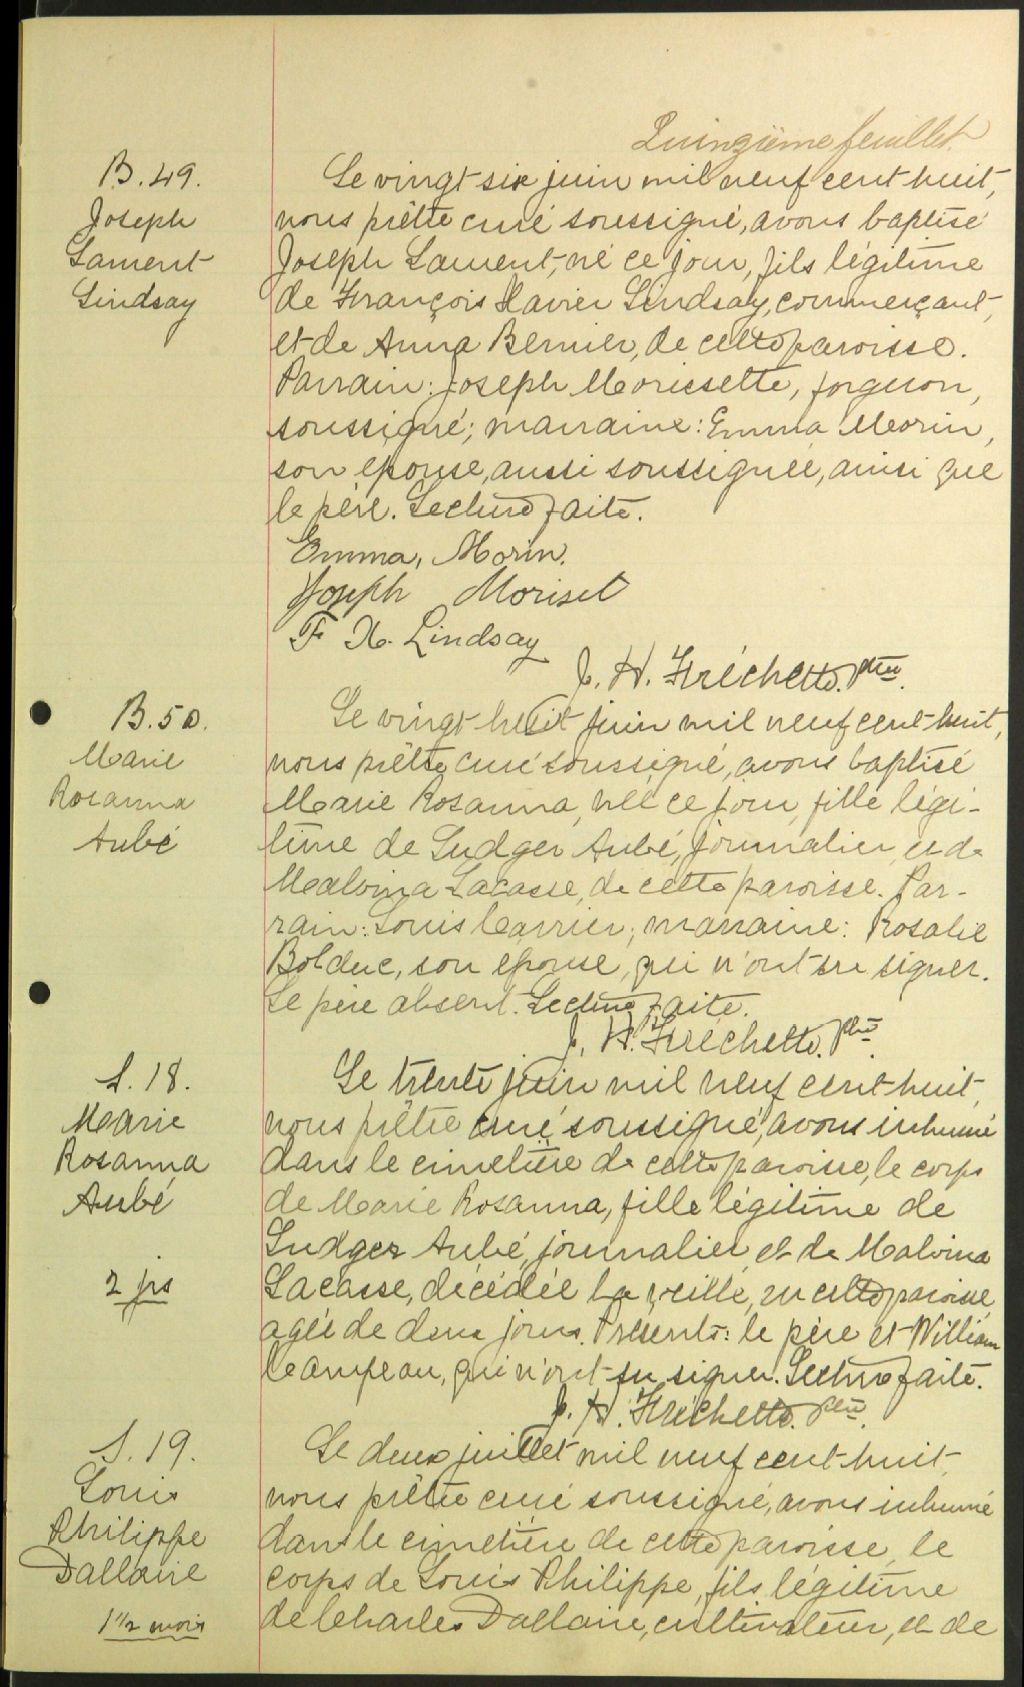 Quinzième feuillet.
B. 49.
Joseph
Laurent
Lindsay
Le vingt six juin mil neuf cent huit,
nous prêtre curé soussigné, avons baptisé
Joseph Laurent, né ce jour, fils légitime
de François Xavier Lindsay, commerçant,
et de Anna Bernier, de cette paroisse.
Parrain: Joseph Morissette, forgeron,
soussigné; marraine: Emma Morin,
son épouse, aussi soussignée, ainsi que
le père. Lecture faite.
Emma, Morin.
Joseph Moriset
F X. Lindsay
J. H. Fréchette. Ptre.
B. 50.
Marie
Rosanna
Aubé
Le vingt-huit juin mil neuf cent-huit,
nous prêtre curé soussigné, avons baptisé
Marie Rosanna, née ce jour, fille légi-
time de Ludger Aubé, journalier, et de
Malvina Lacasse, de cette paroisse. Par-
rain: Louis Carrier; marraine: Rosalie
Bolduc, son épouse, qui n'ont su signer.
Le père absent. Lecture faite.
J. H. Fréchette. Ptre.
S. 18.
Marie
Rosanna
Aubé
2 jrs
Le trente juin mil neuf cent-huit,
nous prêtre curé soussigné, avons inhumé
dans le cimetière de cette paroisse, le corps
de Marie Rosanna, fille légitime de
Ludger Aubé, journalier, et de Malvina
Lacasse, décédée la veille, en cette paroisse,
agée de deux jours. Présents: le père et William
Campeau, qui n'ont su signer. Lecture faite.
J. H. Fréchette. Ptre.
S. 19.
Louis
Philippe
Dallaire
1 1/2 mois
Le deux juillet mil neuf cent-huit,
nous prêtre curé soussigné, avons inhumé
dans le cimetière de cette paroisse, le
corps de Louis Philippe, fils légitime
de Charles Dallaire, cultivateur, et de